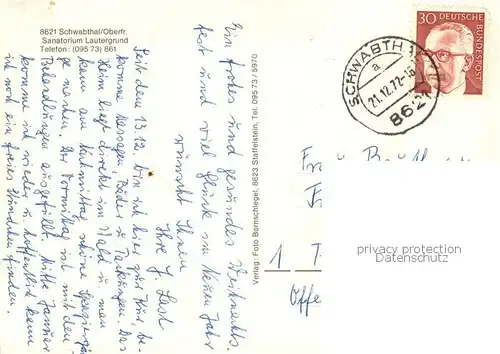 8621 Schwabthal/Oberfr.
Sanatorium Lautergrund
Telefon: (095 73) 861
Ein frohes und gesundes Weihnachts-
fest und viel Glück im Neuen Jahr
wünscht Ihnen
Ihre J. Last
Seit dem 13.12. bin ich hier zur Kur, be-
komme Massagen, Bäder u. Packungen. Das
Heim liegt direkt im Wald u. man
kann am Nachmittag schöne Spaziergän-
ge machen. Der Vormittag ist mit den
Behandlungen ausgefüllt. Mitte Januar
komme ich wieder u. hoffentlich kann
ich noch ein freies Stündchen finden.
Verlag: Foto Bornschlegel, 8623 Staffelstein, Tel. 095 73/5970
30 DEUTSCHE BUNDESPOST
SCHWABTH
a
21.12.72-16
8621
1
Offe
privacy protection
DatenSchutz